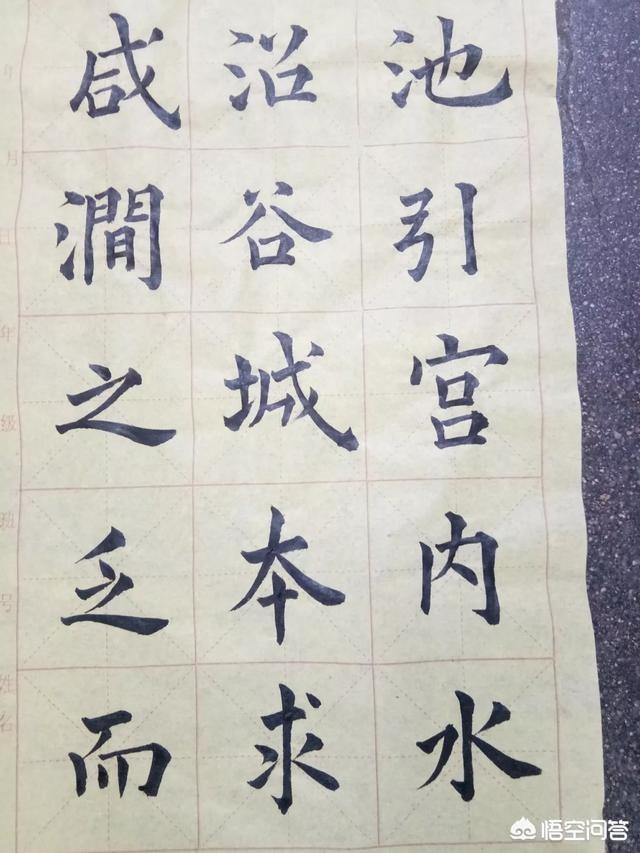 池引宫内水
沿谷城本求
咸澗之乏而
年月日年级班号姓名
悟空问答